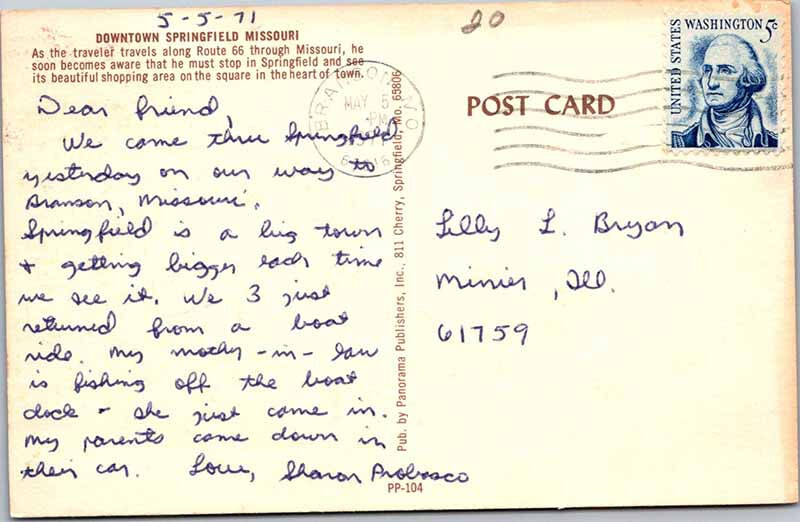 5-5-71
20
DOWNTOWN SPRINGFIELD MISSOURI
As the traveler travels along Route 66 through Missouri, he
soon becomes aware that he must stop in Springfield and see
its beautiful shopping area on the square in the heart of town.
Dear friend,
We came thru Springfield
yesterday on our way to
Branson, Missouri.
Springfield is a big town
+ getting bigger each time
we see it. We 3 just
returned from a boat
ride. My mother-in-law
is fishing off the boat
dock - she just came in.
My parents came down in
their car. Love, Sharon Probasco
BRANSON, MO
MAY 5
PM
Pub. by Panorama Publishers, Inc., 811 Cherry, Springfield, Mo. 65806
PP-104
POST CARD
UNITED STATES
WASHINGTON 5c
Lilly L. Bryan
Minier, Ill.
61759